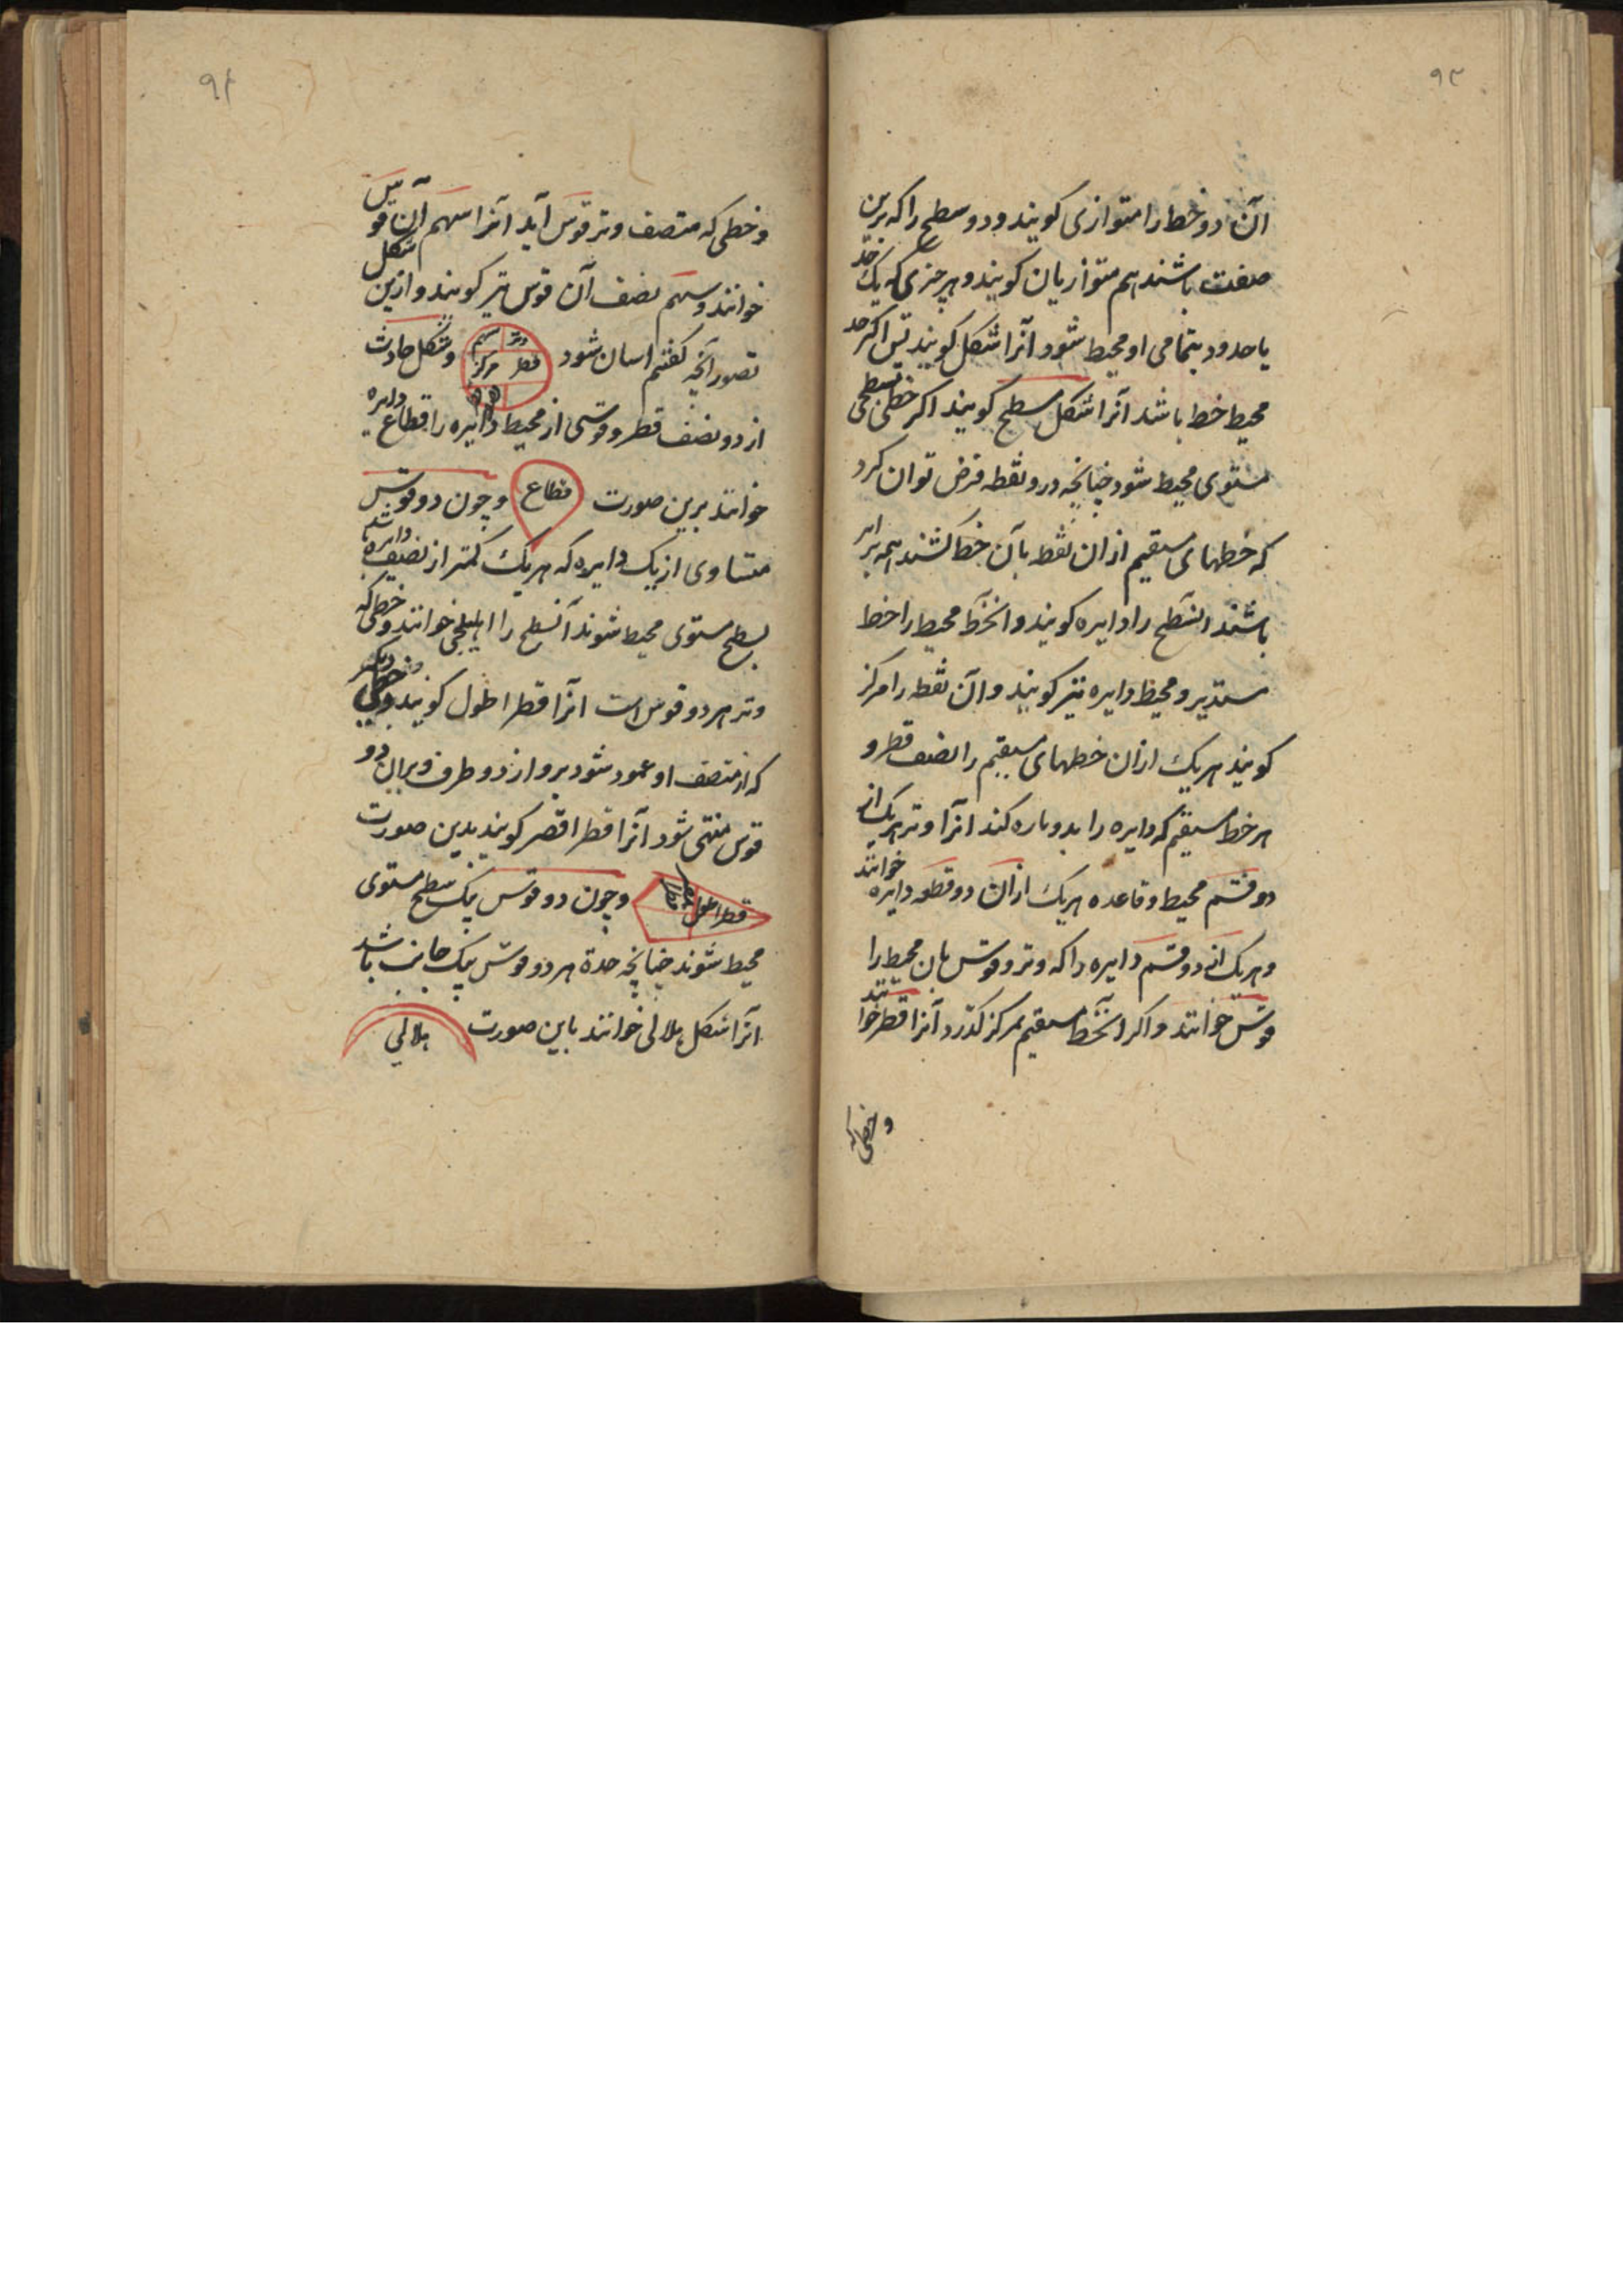 ۹۳
آن دو خط را متوازی کویند و دو سطح را که برین
صفت باشند هم متوازیان کویند و هر چیزی که یک حد
یا حدود بتمامی او محیط شود آنرا شکل کویند پس اکر حد
محیط خط باشد آنرا شکل سطح کویند اکر خطی بسطحی
مستوی محیط شود چنانچه درو نقطه فرض توان کرد
که خطهای مستقیم ازان نقطه بآن خط کشند همه برابر
باشند انسطح را دایره کویند و انخط محیط را خط
مستدیر و محیط دایره نیز کویند و آن نقطه را مرکز
کویند هر یک ازان خطهای مستقیم را نصف قطر و
هر خط مستقیم که دایره را بدو پاره کند انرا وتر هر یک از
دو قسم محیط و قاعده هر یک ازان دو قطعه دایره خوانند
و هر یک از دو قسم دایره را که وتر و قوس بان محیط را
قوس خوانند و اکر انخط مستقیم بمرکز کذرد آنرا قطر خوانند
و خطی که
۹۴
و خطی که منتصف وتر قوس آید آنرا سهم آن قوس
خوانند و سهم نصف آن قوس نیز کویند و ازین شکل
تصور آنچه کفتیم اسان شود وتر سهم قطر مرکز و شکل حادث
از دو نصف قطر و قوسی از محیط دایره را قطاع دایره
خوانند برین صورت قطاع و چون دو قوس
متساوی از یک دایره که هر یک کمتر از نصف دایره باشد
بسطح مستوی محیط شوند آنسطح را اهلیلجی خوانند و خطی که
وتر هر دو قوس است انرا قطر اطول کویند و خطی دیکر
که از منتصف او عمود شود برو از دو طرف و بران دو
قوس منتهی شود آنرا قطر اقصر کویند بدین صورت
قطر اطول و چون دو قوس بیک سطح مستوی
محیط شوند چنانچه حدة هر دو قوس بیک جانب باشد
انرا شکل هلالی خوانند باین صورت هلالی